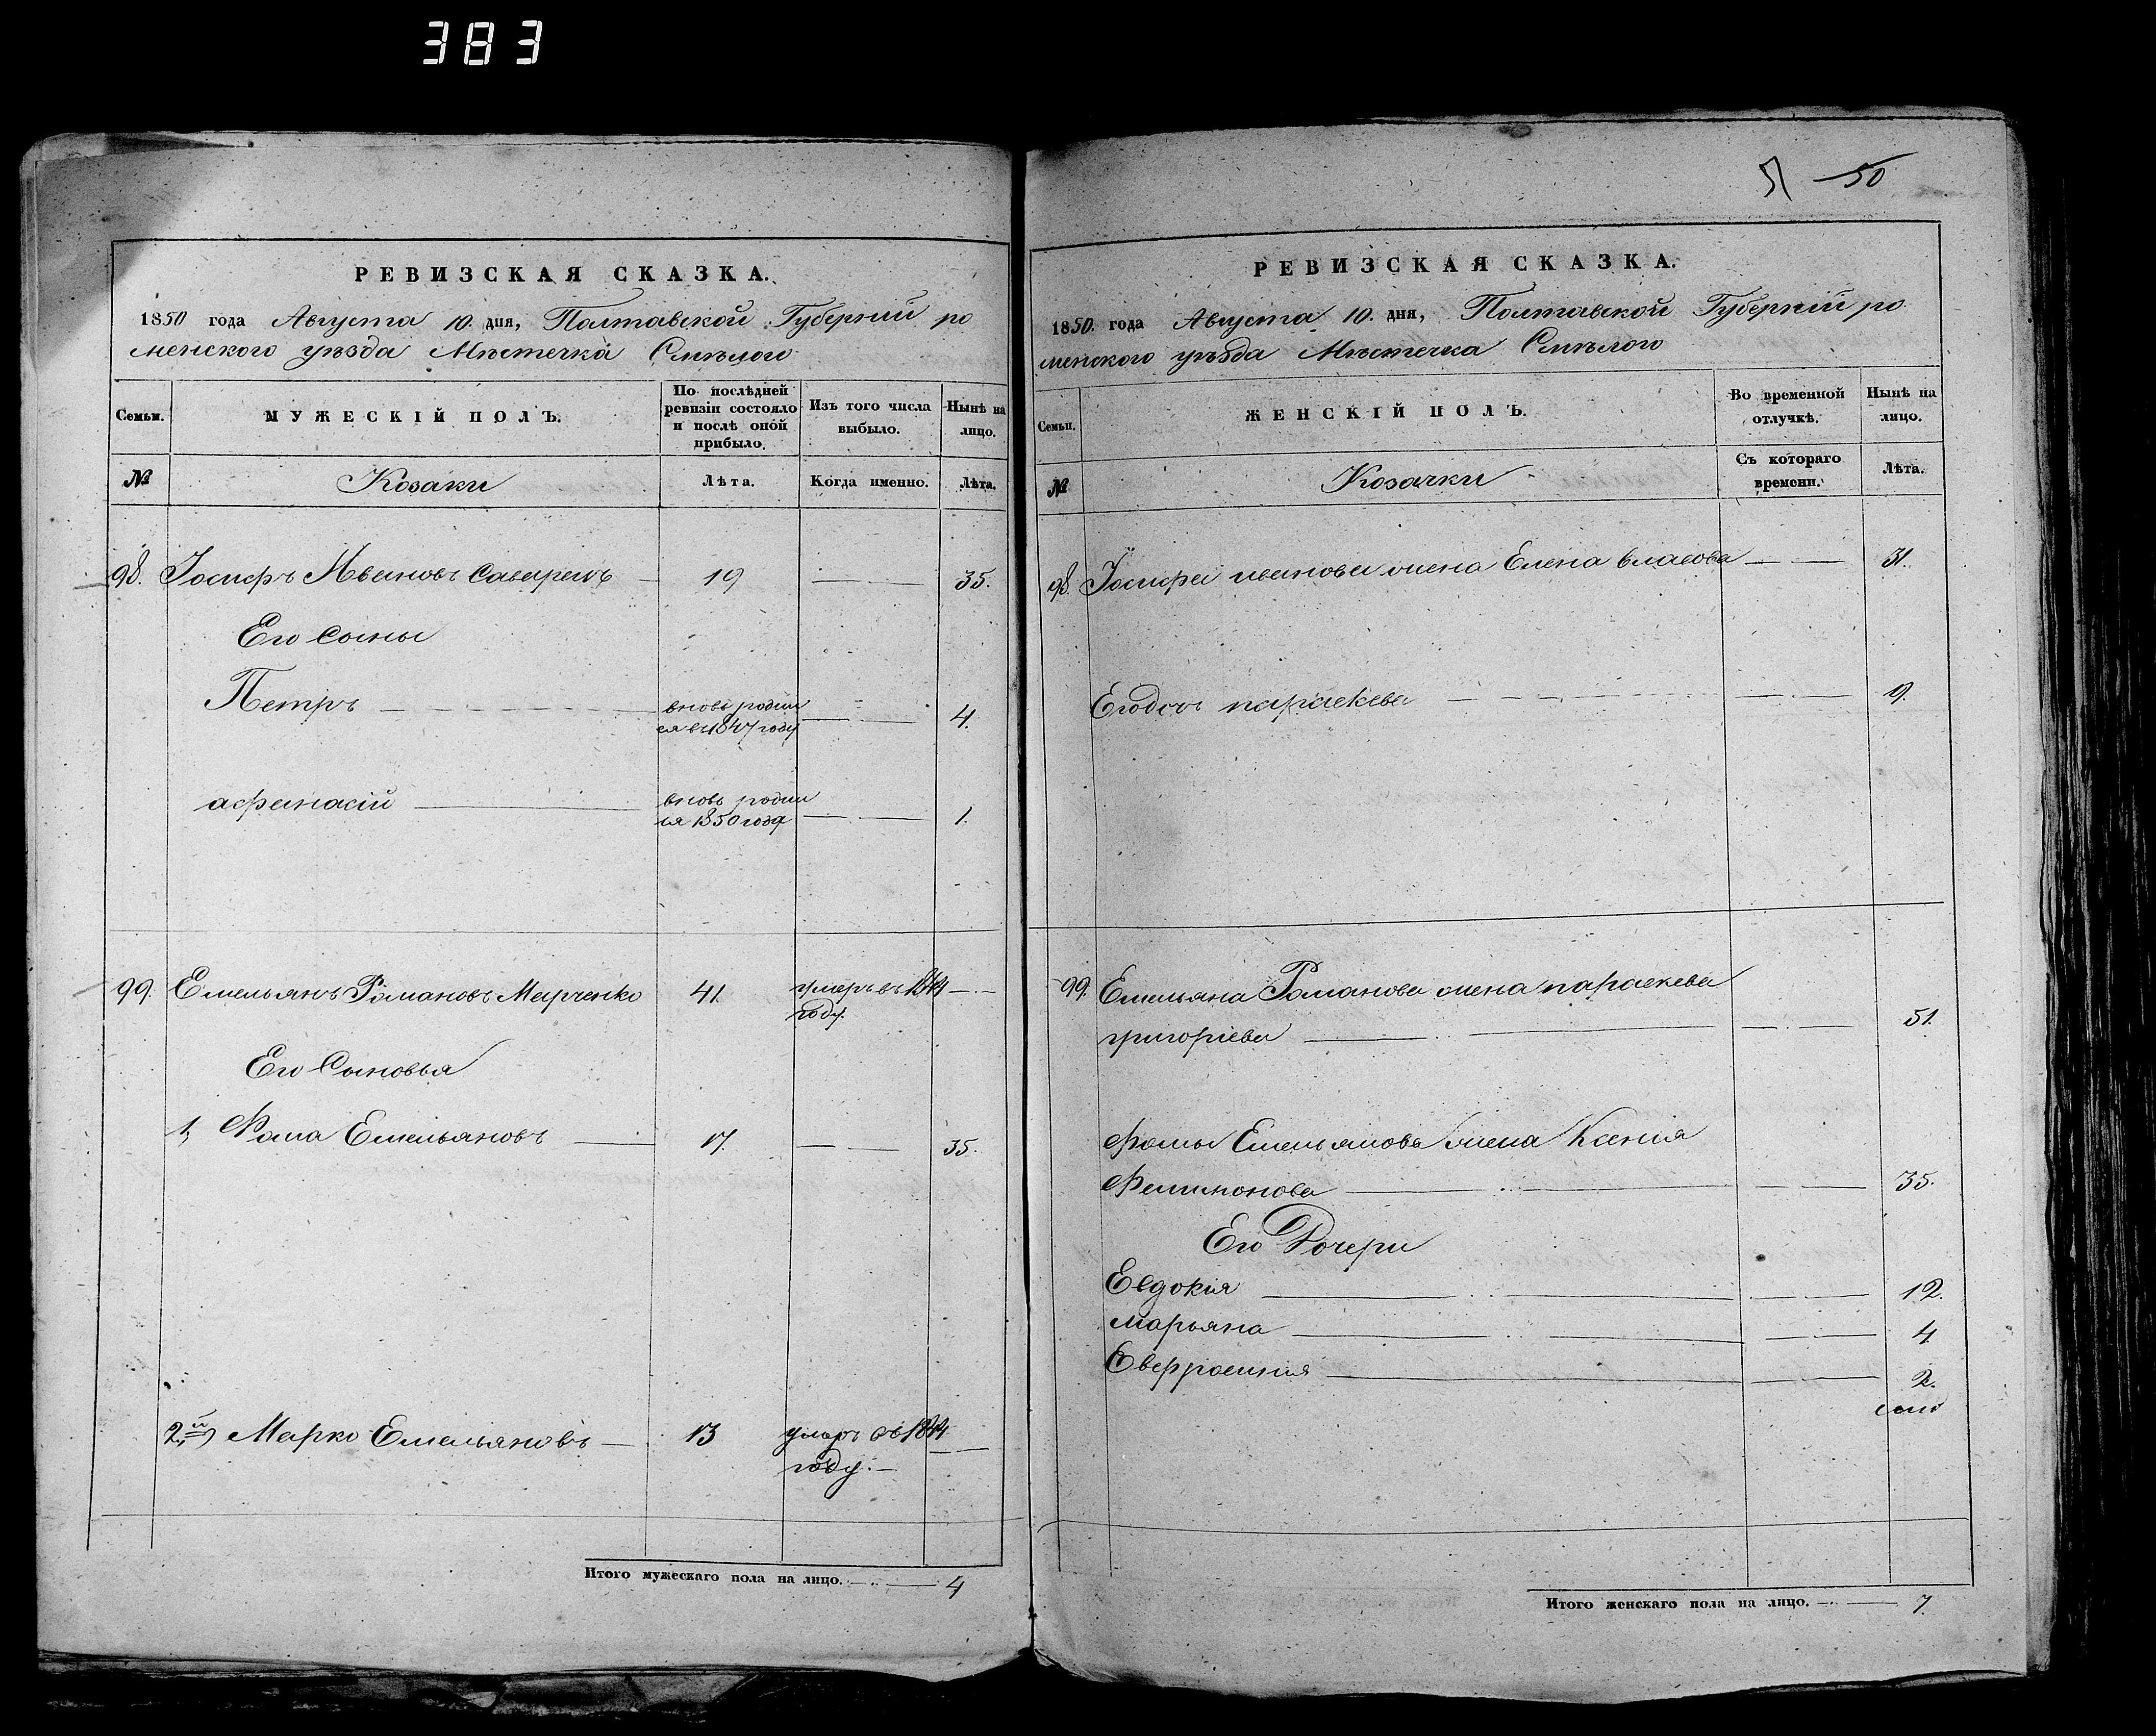 383
51 50
РЕВИЗСКАЯ СКАЗКА.
1850 года Августа 10. дня, Полтавской Губерніи ро
менского уѣзда Мѣстечка Смѣлого
Семьи.
МУЖЕСКІЙ ПОЛЪ.
По послѣдней
ревизіи состояло
и послѣ оной
прибыло.
Изъ того числа
выбыло.
Нынѣ на
лицо.
№
Козаки
Лѣта.
Когда именно.
Лѣта.
98. Іосифъ Ивановъ 19 35.
Его Сыны
Петръ вновь родил
ся въ 1847 году 4.
афанасій вновь родил
ся 1850 года 1.
99. Емельянъ Романовъ Марченко 41. умеръ въ 1844
году.
Его Сыновья
1, Фома Емельяновъ 17. 35.
2й, Марко Емельяновъ 13 умеръ въ 1844
году.
Итого мужескаго пола на лицо. 4
РЕВИЗСКАЯ СКАЗКА.
1850. года Августа 10. дня, Полтавской Губерніи ро
менского уѣзда Мѣстечка Смѣлого
Семьи.
ЖЕНСКІЙ ПОЛЪ.
Во временной
отлучкѣ.
Нынѣ на
лицо.
№
Козачки
Съ котораго
времени.
Лѣта.
98. Іосифа иванова жена Елена власова 31.
Его дочь параскева 9.
99. Емельяна Романова жена параскева
григоріева 51.
Фомы Емельянова жена Ксенія
35.
Его Дочери
Евдокія 12.
марьяна 4
Евфросинія 2.
Итого женскаго пола на лицо. 7.